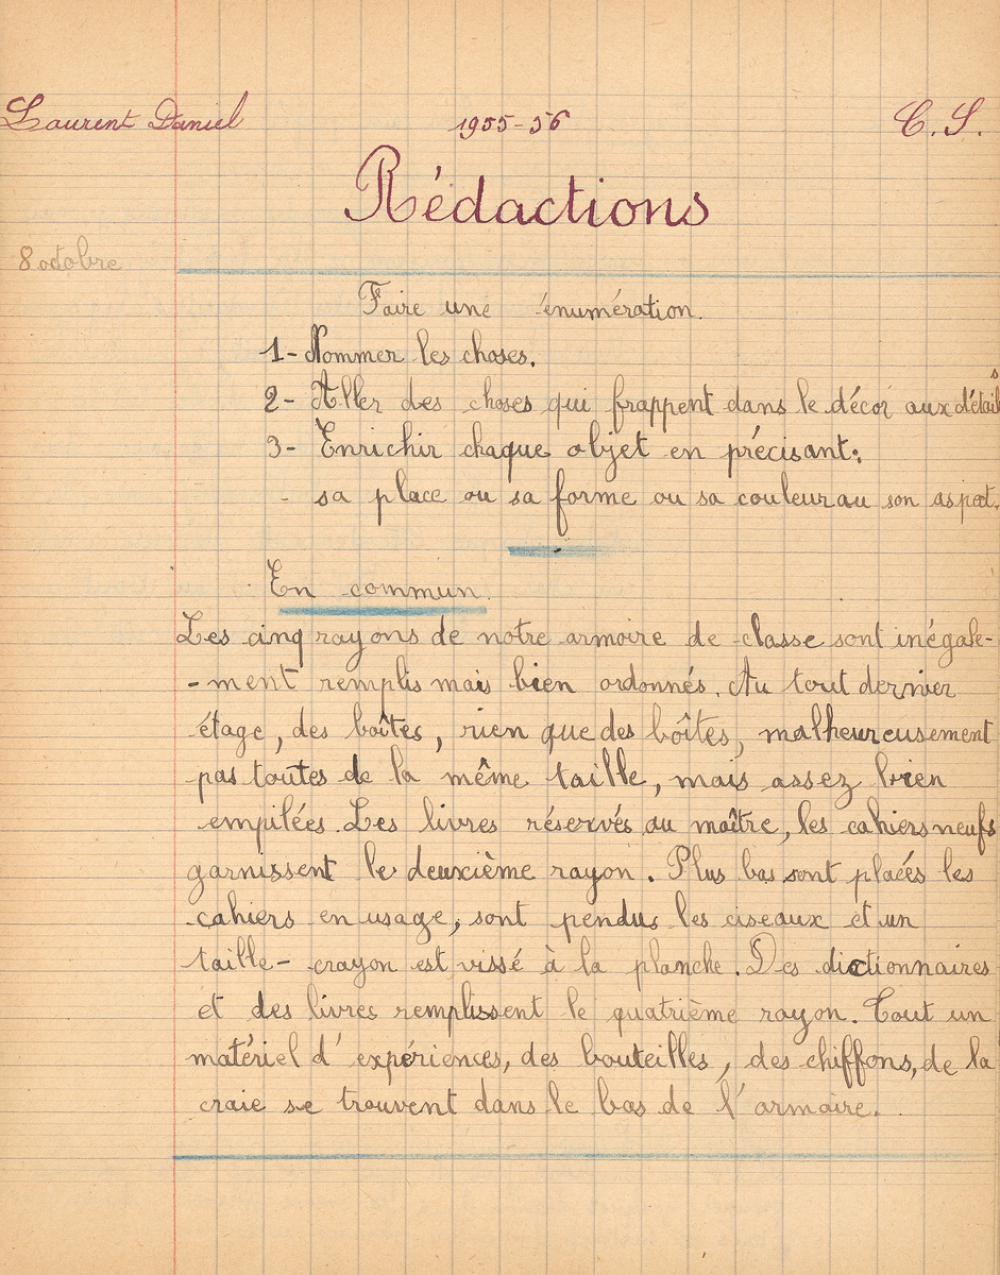 Laurent Daniel 1955-56 C.S.
Rédactions
8 octobre
Faire une énumération.
1- Nommer les choses.
2- Aller des choses qui frappent dans le décor aux détails
3- Enrichir chaque objet en précisant:
- sa place ou sa forme ou sa couleur au son aspect.
En commun.
Les cinq rayons de notre armoire de classe sont inégale-
-ment remplis mais bien ordonnés. Au tout dernier
étage, des boîtes, rien que des boîtes, malheureusement
pas toutes de la même taille, mais assez bien
empilées. Les livres réservés au maître, les cahiers neufs
garnissent le deuxième rayon. Plus bas sont placés les
cahiers en usage, sont pendus les ciseaux et un
taille-crayon est vissé à la planche. Des dictionnaires
et des livres remplissent le quatrième rayon. Tout un
matériel d'expériences, des bouteilles, des chiffons, de la
craie se trouvent dans le bas de l'armoire.